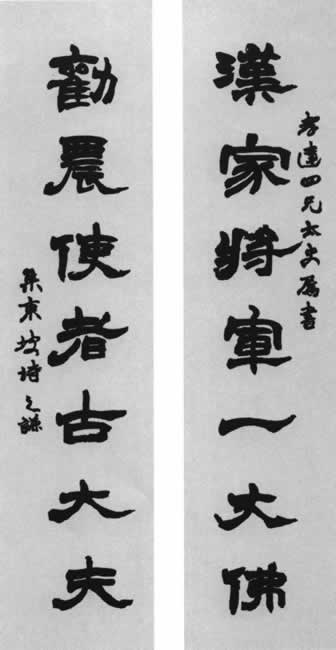 孝達四兄太史屬書
漢家將軍一大佛
勸農使者古大夫
集東坡詩之謙